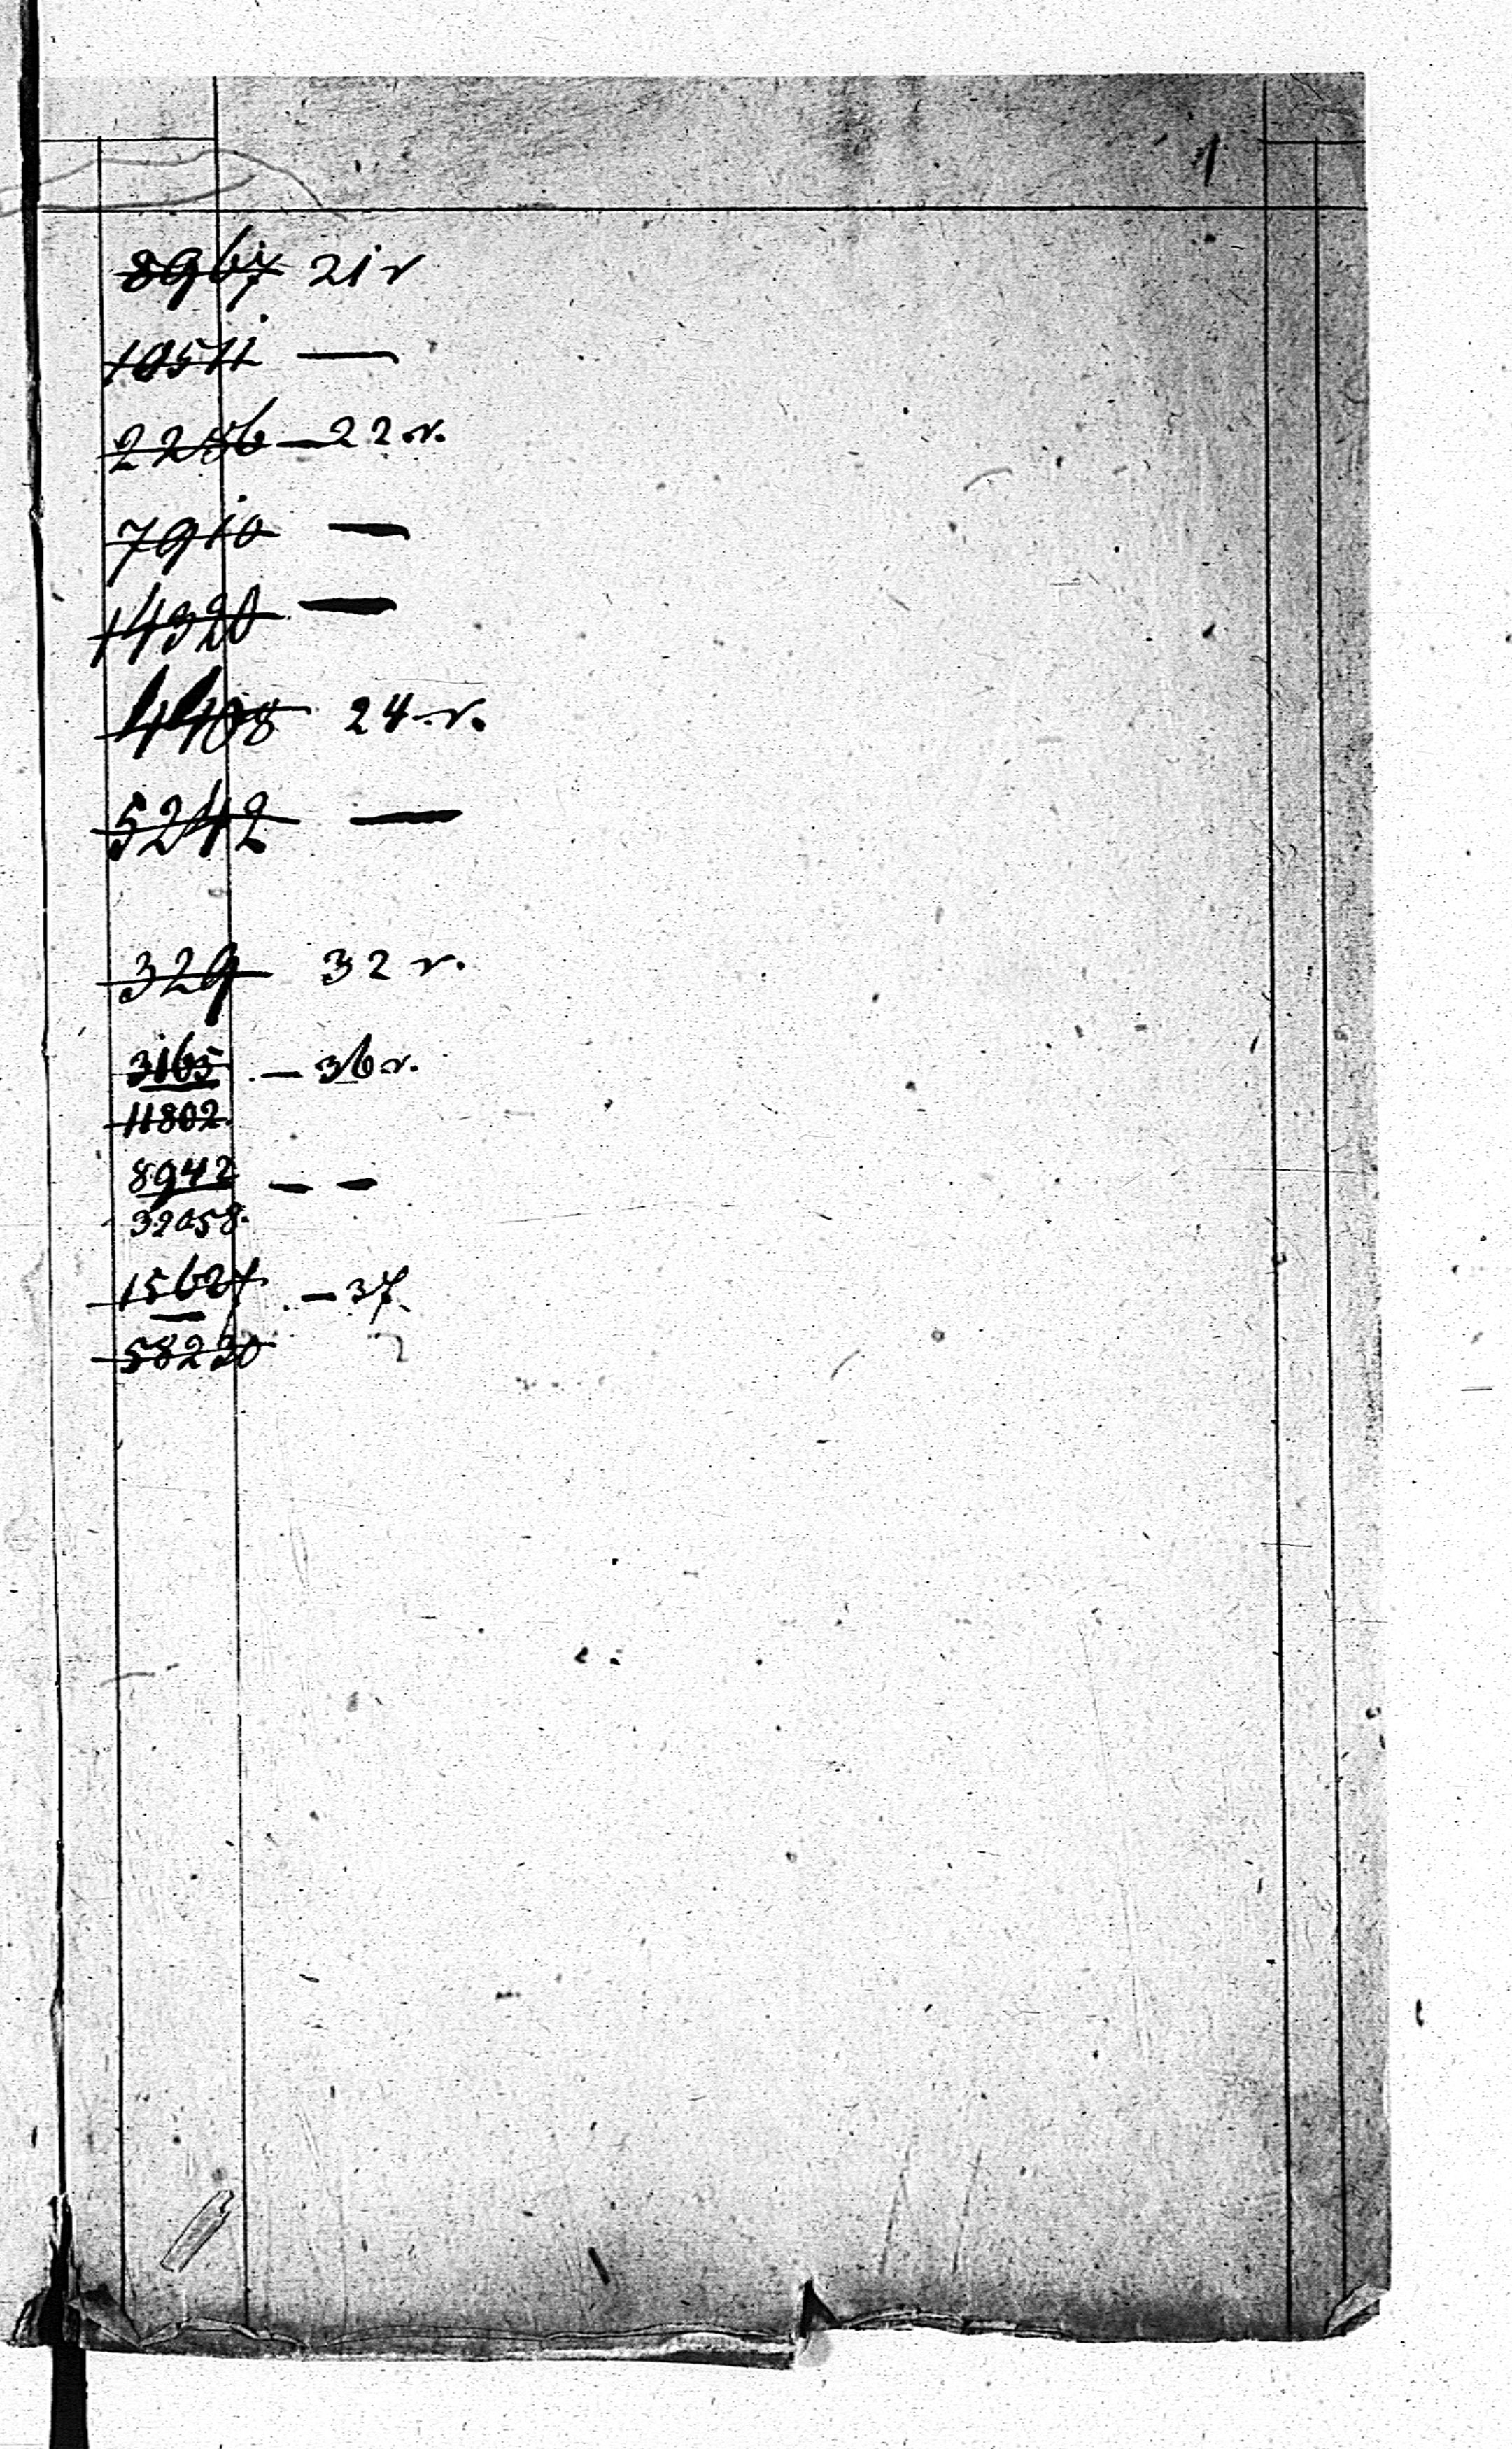 1
8967 21 г
10511 —
2256 — 22 г.
7910 —
14320 —
4408 24 г.
5242 —
329 32 г.
3165 — 36 г.
11802.
8942 — —
32058.
15627 — 37
58230